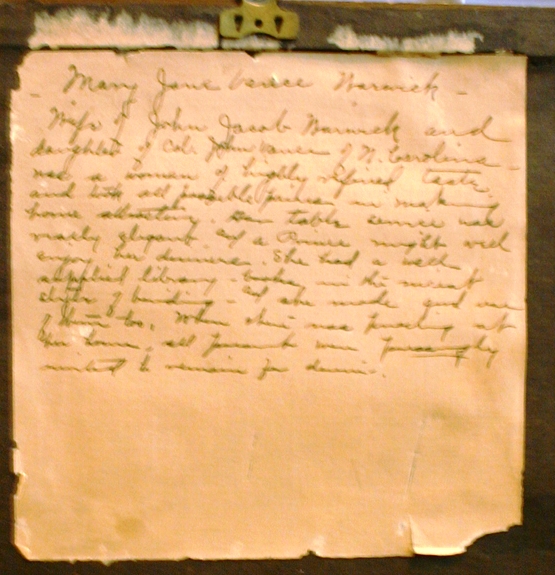 Mary Jane Vance Warwick -
Wife of John Jacob Warwick and
daughter of Col. John Vance of N. Carolina -
was a woman of highly refined taste
and took all possible pains in making
home attractive. Her table service was
really elegant and a Prince might well
enjoy her dinners. She had a well
supplied library - books in the nicest
style of binding - and she made good use
of them too. When there was preaching at
her home, all present were pressingly
invited to remain for dinner.